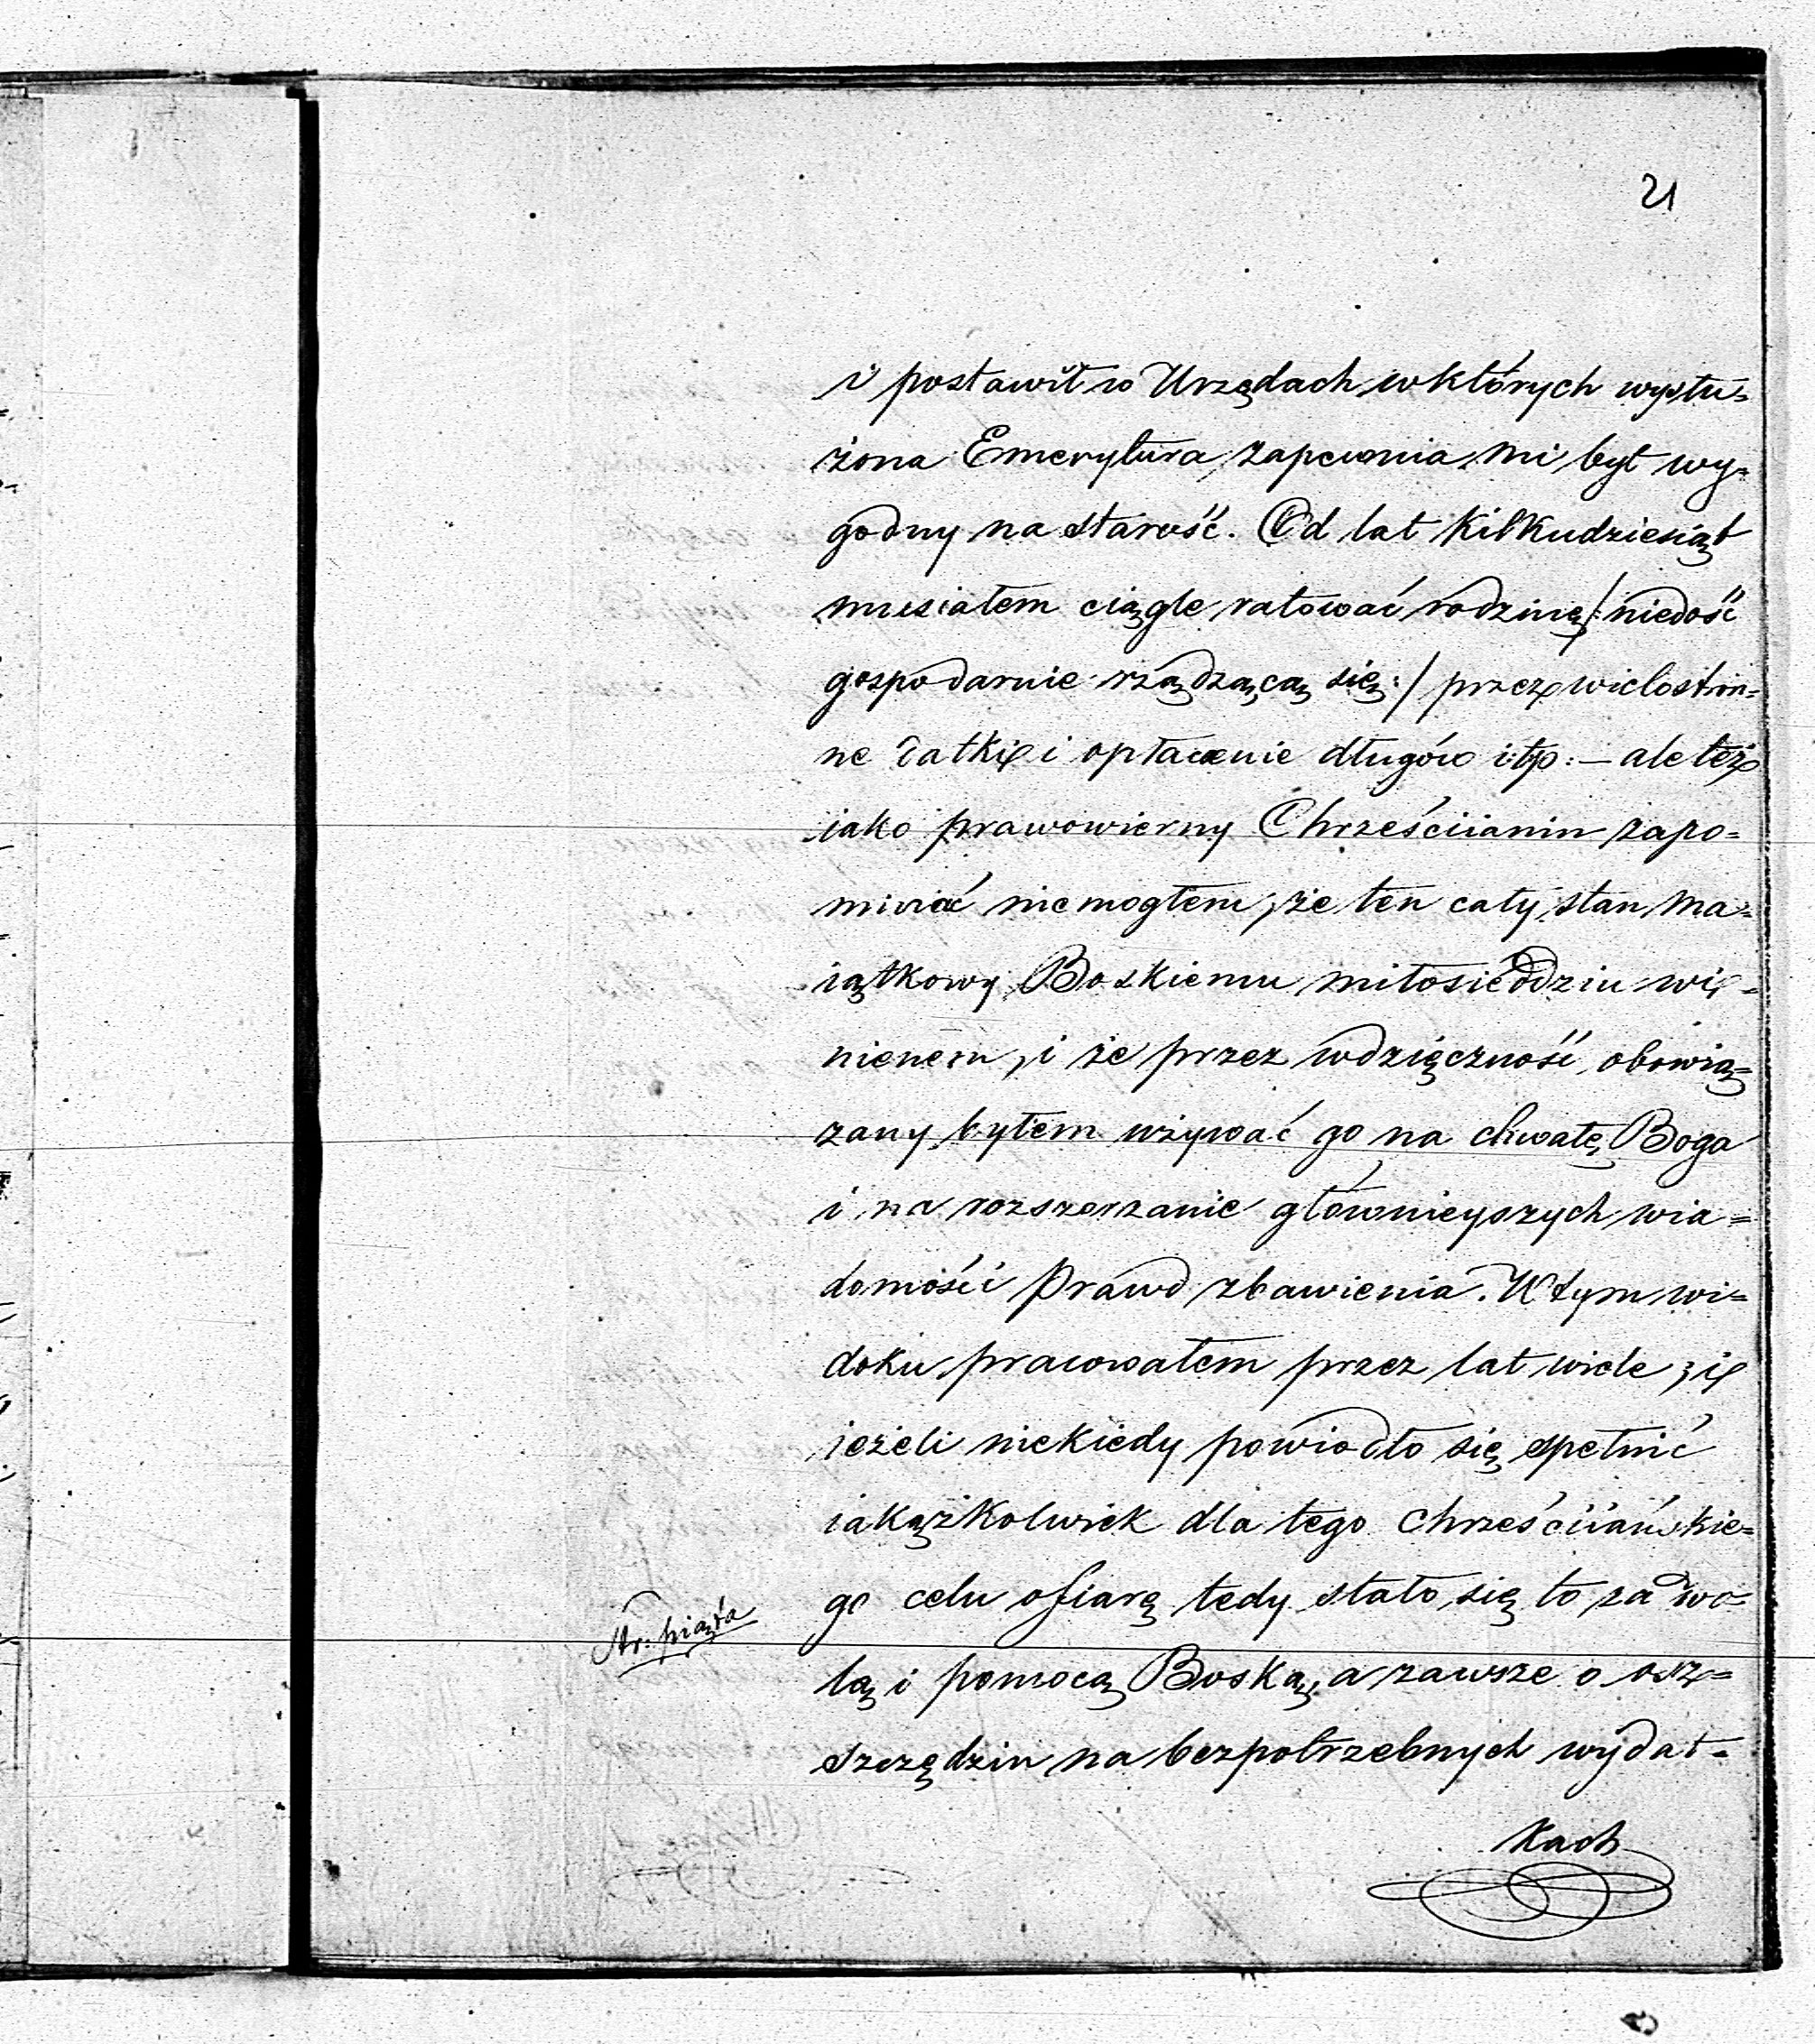 21
i postawił w Urzędach w których wysłu=
żona Emerytura zapewnia mi był wy=
godny na starość. Od lat kilkudziesiąt
musiałem ciągle ratować rodzinę /: niedość
gospodarnie rządzącą się :/ przez wielostron=
ne datki i opłacenie długów itp: — ale też
iako prawowierny Chrześciianin zapo=
minać niemogłem, że ten cały stan ma=
iątkowy Boskiemu miłosierdziu wi=
nienem, i że przez wdzięczność obowią=
zany byłem używać go na chwałę Boga
i na rozszerzanie głównieyszych wia=
domości Prawd zbawienia. W tym wi=
doku pracowałem przez lat wiele, i
ieżeli niekiedy powiodło się spełnić
iakążkolwiek dla tego chrześciiańskie=
go celu ofiarę tedy stało się to za wo=
Str: piąta
lą i pomocą Boską, a zawsze o osz=
szczędziu na bezpotrzebnych wydat=
kach